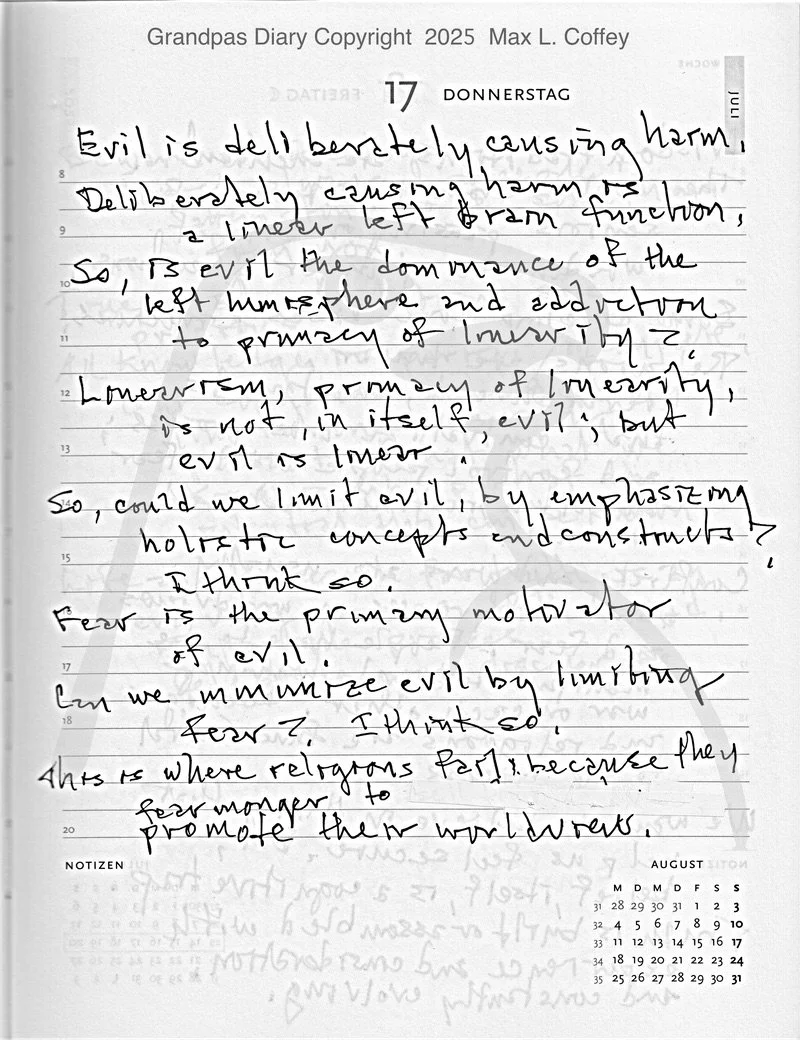 Grandpas Diary Copyright 2025 Max L. Coffey
17 DONNERSTAG
JULI
Evil is deliberately causing harm.
8
Deliberately causing harm is
a linear left brain function.
9
So, is evil the dominance of the
10
left humisphere and addiction
11
to primacy of linearity?
12
Linearism, primacy of linearity,
is not, in itself, evil; but
13
evil is linear.
14
So, could we limit evil, by emphasizing
holistic concepts and constructs?
15
I think so.
16
Fear is the primary motivator
of evil.
17
Can we minimize evil by limiting
18
fear? I think so.
This is where religions fail; because they
fear monger to
20
promote their worldviews.
NOTIZEN
AUGUST
M D M D F S S
31 28 29 30 31 1 2 3
32 4 5 6 7 8 9 10
33 11 12 13 14 15 16 17
34 18 19 20 21 22 23 24
35 25 26 27 28 29 30 31